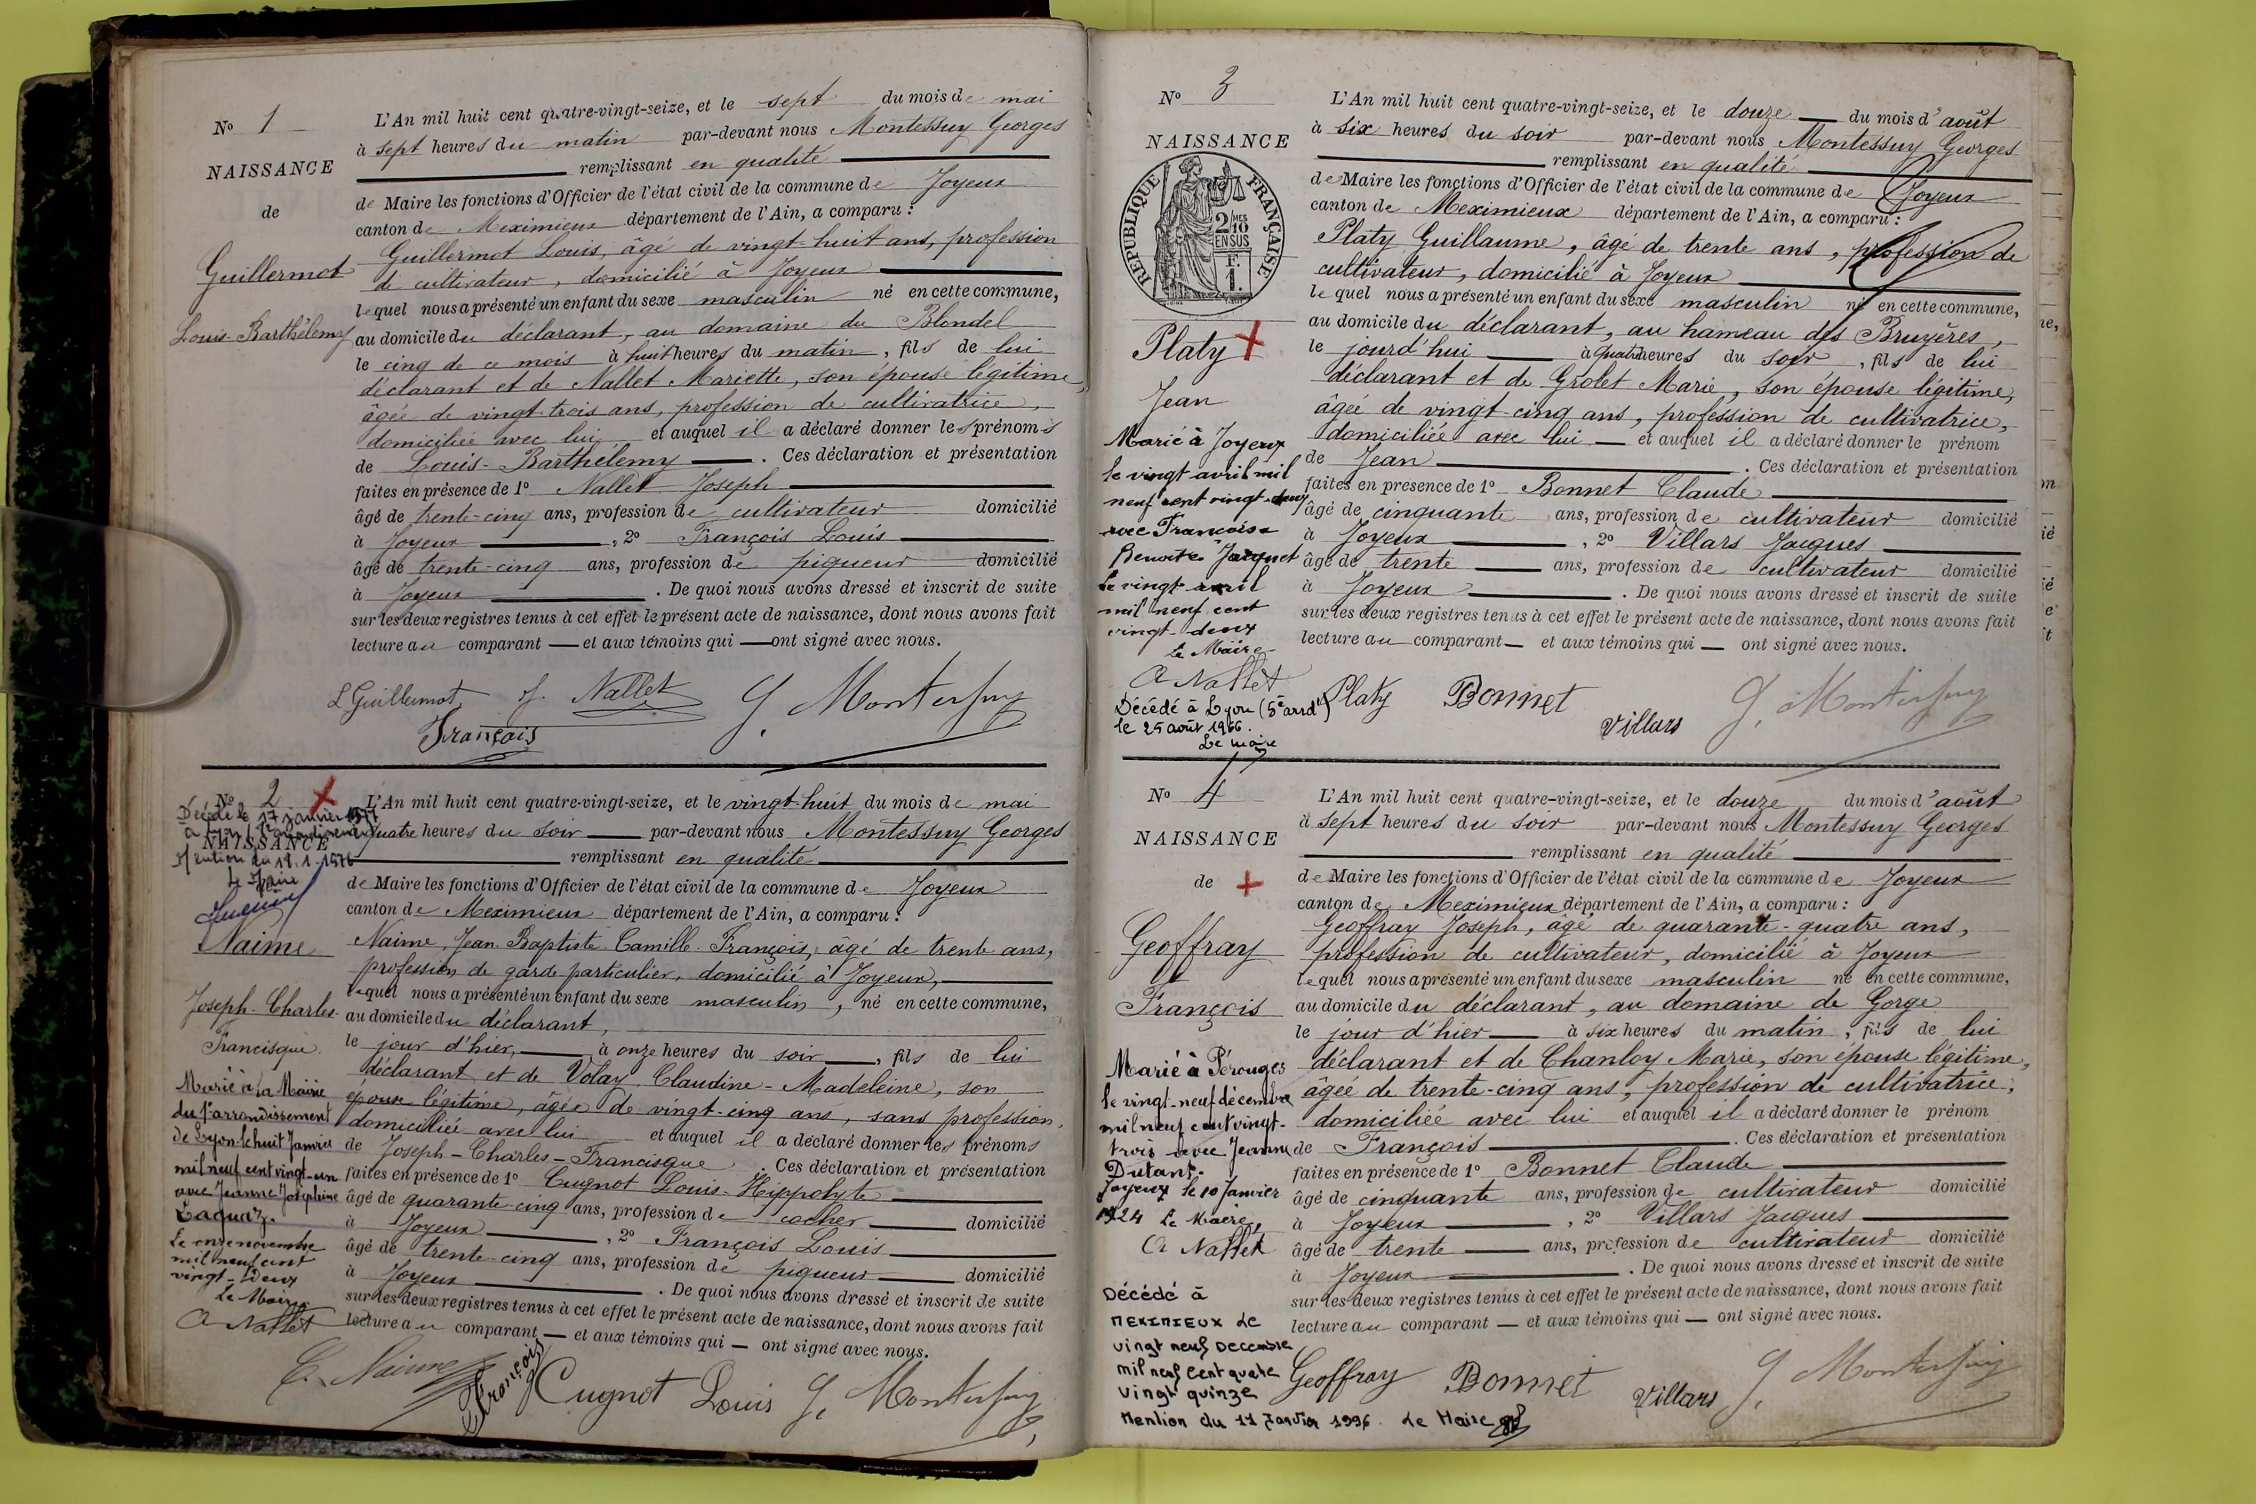 N° 1
NAISSANCE
de
Guillermot
Louis-Barthélemy
L'An mil huit cent quatre-vingt-seize, et le sept du mois de mai
à sept heures du matin par-devant nous Montessuy Georges
remplissant en qualité
de Maire les fonctions d'Officier de l'état civil de la commune de Joyeux
canton de Meximieux département de l'Ain, a comparu :
Guillermot Louis, âgé de vingt-huit ans, profession
de cultivateur, domicilié à Joyeux
lequel nous a présenté un enfant du sexe masculin né en cette commune,
au domicile du déclarant, au domaine du Blondel
le cinq de ce mois à huit heures du matin, fils de lui
déclarant et de Nallet Mariette, son épouse légitime,
âgée de vingt-trois ans, profession de cultivatrice,
domiciliée avec lui et auquel il a déclaré donner les prénoms
de Louis-Barthélemy . Ces déclaration et présentation
faites en présence de 1° Nallet Joseph
âgé de trente-cinq ans, profession de cultivateur domicilié
à Joyeux , 2° François Louis
âgé de trente-cinq ans, profession de piqueur domicilié
à Joyeux . De quoi nous avons dressé et inscrit de suite
sur les deux registres tenus à cet effet le présent acte de naissance, dont nous avons fait
lecture au comparant — et aux témoins qui — ont signé avec nous.
L Guillermot J. Nallet G. Montessuy
François
N° 2
Décédé le 17 janvier 1977
à Lyon
NAISSANCE
Mention du 18.1.1976
Le Maire
Naime
Joseph-Charles-
Francisque
Marié à la Mairie
du 1er arrondissement
de Lyon le huit Janvier
mil neuf cent vingt-un
avec Jeanne Joséphine
Laquaz.
Le onze novembre
mil neuf cent
vingt-Deux
Le Maire
A Nallet
L'An mil huit cent quatre-vingt-seize, et le vingt-huit du mois de mai
quatre heures du soir par-devant nous Montessuy Georges
remplissant en qualité
de Maire les fonctions d'Officier de l'état civil de la commune de Joyeux
canton de Meximieux département de l'Ain, a comparu :
Naime, Jean-Baptiste-Camille-François, âgé de trente ans,
profession de garde particulier, domicilié à Joyeux,
lequel nous a présenté un enfant du sexe masculin, né en cette commune,
au domicile du déclarant,
le jour d'hier, à onze heures du soir, fils de lui
déclarant et de Volay Claudine-Madeleine, son
épouse légitime, âgée de vingt-cinq ans, sans profession,
domiciliée avec lui et auquel il a déclaré donner les prénoms
de Joseph-Charles-Francisque . Ces déclaration et présentation
faites en présence de 1° Cugnot Louis-Hippolyte
âgé de quarante-cinq ans, profession de cocher domicilié
à Joyeux , 2° François Louis
âgé de trente-cinq ans, profession de piqueur domicilié
à Joyeux . De quoi nous avons dressé et inscrit de suite
sur les deux registres tenus à cet effet le présent acte de naissance, dont nous avons fait
lecture au comparant — et aux témoins qui — ont signé avec nous.
C. Naime François Cugnot Louis G. Montessuy
N° 3
NAISSANCE
RÉPUBLIQUE FRANÇAISE
2/10 MES
EN SUS
F.
1.
Platy
Jean
Marié à Joyeux
le vingt avril mil
neuf cent vingt-deux
avec Françoise
Benoite Jacquet
Le vingt avril
mil neuf cent
vingt-deux
Le Maire
A Nallet
Décédé à Lyon (5e arrdt)
le 25 août 1966.
Le maire
L'An mil huit cent quatre-vingt-seize, et le douze du mois d'août
à six heures du soir par-devant nous Montessuy Georges
remplissant en qualité
de Maire les fonctions d'Officier de l'état civil de la commune de Joyeux
canton de Meximieux département de l'Ain, a comparu :
Platy Guillaume, âgé de trente ans, profession de
cultivateur, domicilié à Joyeux
lequel nous a présenté un enfant du sexe masculin né en cette commune,
au domicile du déclarant, au hameau des Bruyères,
le jourd'hui à quatre heures du soir, fils de lui
déclarant et de Grolet Marie, son épouse légitime,
âgée de vingt-cinq ans, profession de cultivatrice,
domiciliée avec lui — et auquel il a déclaré donner le prénom
de Jean . Ces déclaration et présentation
faites en présence de 1° Bonnet Claude
âgé de cinquante ans, profession de cultivateur domicilié
à Joyeux , 2° Villars Jacques
âgé de trente ans, profession de cultivateur domicilié
à Joyeux . De quoi nous avons dressé et inscrit de suite
sur les deux registres tenus à cet effet le présent acte de naissance, dont nous avons fait
lecture au comparant — et aux témoins qui — ont signé avec nous.
Platy Bonnet Villars G. Montessuy
N° 4
NAISSANCE
de
Geoffray
François
Marié à Pérouges
le vingt-neuf décembre
mil neuf cent vingt-
trois avec Jeanne
Dutant.
Joyeux le 10 Janvier
1924 Le Maire,
A Nallet
Décédé à
MEXIMIEUX Le
vingt neuf Decembre
mil neuf Cent quatre
vingt quinze
Mention du 11 Janvier 1996. Le Maire
L'An mil huit cent quatre-vingt-seize, et le douze du mois d'août
à sept heures du soir par-devant nous Montessuy Georges
remplissant en qualité
de Maire les fonctions d'Officier de l'état civil de la commune de Joyeux
canton de Meximieux département de l'Ain, a comparu :
Geoffray Joseph, âgé de quarante-quatre ans,
profession de cultivateur, domicilié à Joyeux
lequel nous a présenté un enfant du sexe masculin né en cette commune,
au domicile du déclarant, au domaine de Gorge
le jour d'hier à six heures du matin, fils de lui
déclarant et de Chanloy Marie, son épouse légitime,
âgée de trente-cinq ans, profession de cultivatrice,
domiciliée avec lui et auquel il a déclaré donner le prénom
de François . Ces déclaration et présentation
faites en présence de 1° Bonnet Claude
âgé de cinquante ans, profession de cultivateur domicilié
à Joyeux , 2° Villars Jacques
âgé de trente ans, profession de cultivateur domicilié
à Joyeux . De quoi nous avons dressé et inscrit de suite
sur les deux registres tenus à cet effet le présent acte de naissance, dont nous avons fait
lecture au comparant — et aux témoins qui — ont signé avec nous.
Geoffray Bonnet Villars G. Montessuy